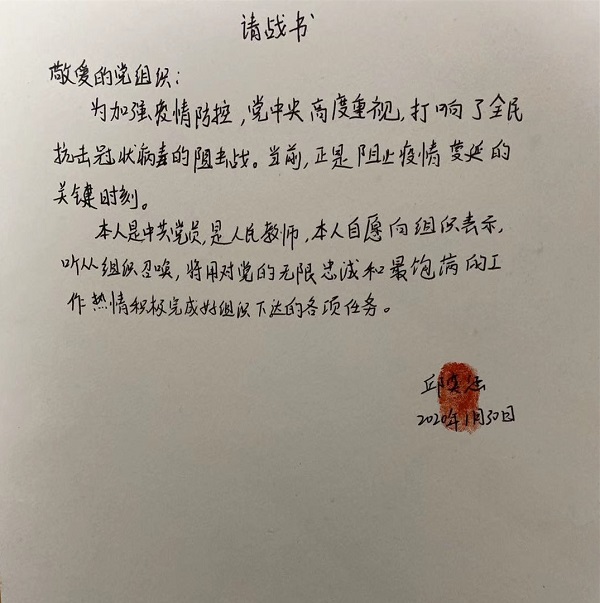 请战书
敬爱的党组织：
为加强疫情防控，党中央高度重视，打响了全民
抗击冠状病毒的阻击战。当前，正是阻止疫情蔓延的
关键时刻。
本人是中共党员，是人民教师，本人自愿向组织表示，
听从组织召唤，将用对党的无限忠诚和最饱满的工
作热情积极完成好组织下达的各项任务。
邱
2020年1月30日